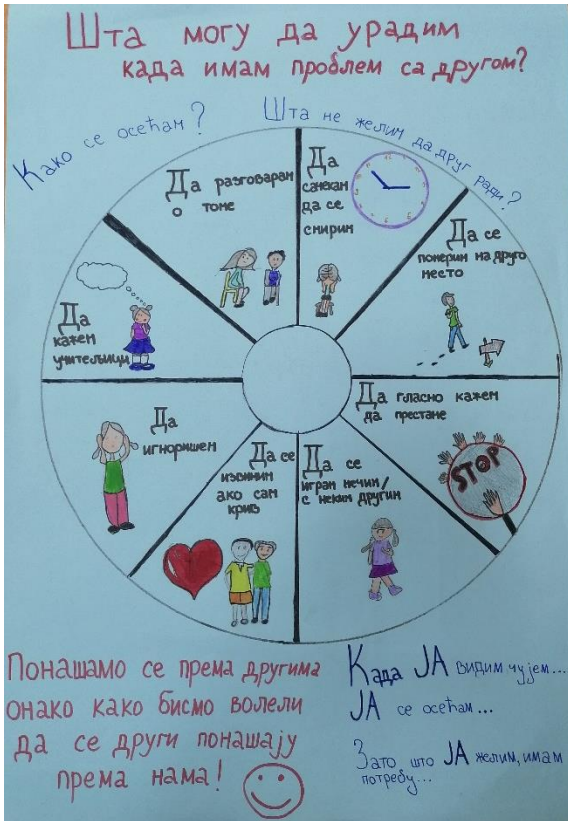 Шта могу да урадим
када имам проблем са другом?
Како се осећам?
Шта не желим да друг ради?
Да разговарам
о томе
Да
сачекам
да се
смирим
Да се
померим на друго
место
Да гласно кажем
да престане
STOP
Да се
играм нечим/
с неким другим
Да се
извиним
ако сам
крив
Да
игноришем
Да
кажем
учитељици
Понашамо се према другима
онако како бисмо волели
да се други понашају
према нама!
Када ЈА видим чујем...
ЈА се осећам...
Зато што ЈА желим, имам
потребу...